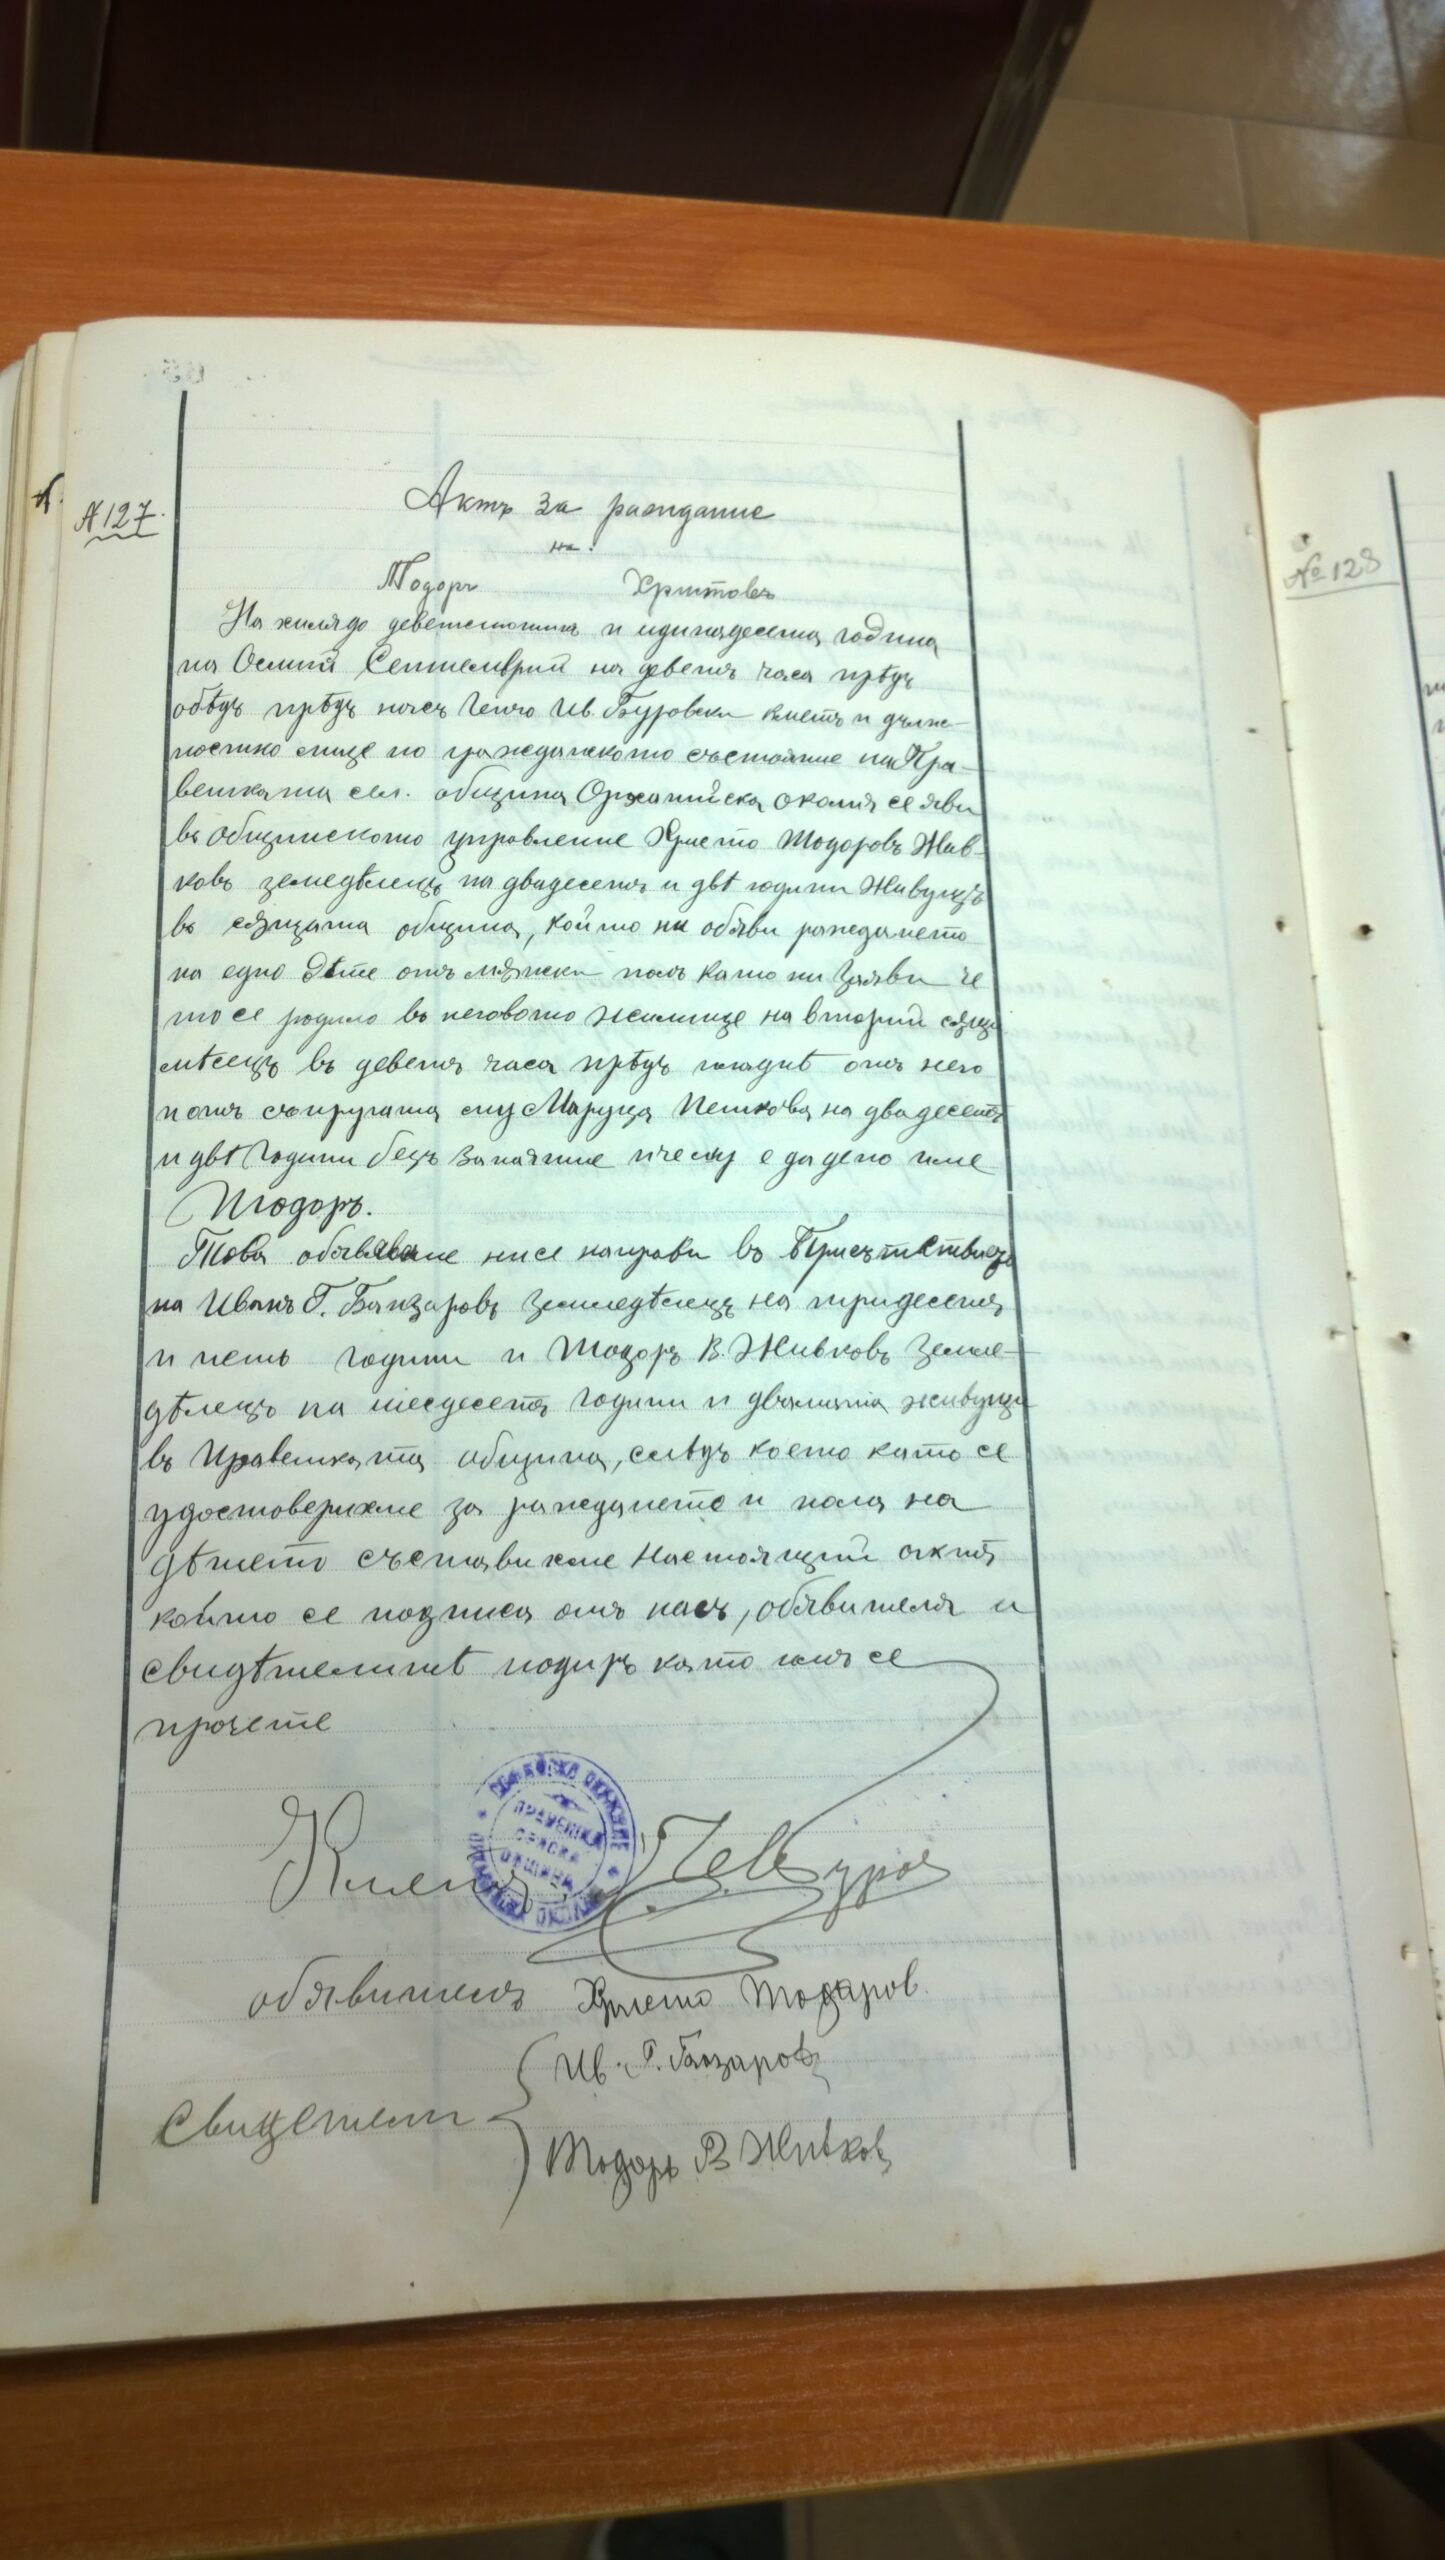 № 127.
Актъ за раждание
на
Тодоръ Христовъ
На хилядо деветстотинъ и единадесета година
на Осмий Септемврий на деветъ часа прѣдъ
обѣдъ прѣдъ насъ Генчо Ив. Буровски кметъ и длъж-
ностно лице по гражданското състояние на Пра-
вешката сел. община Орханийска околия се яви
въ общинското управление Христо Тодоровъ Жив-
ковъ земедѣлецъ на двадесетъ и двѣ години живущъ
въ сѫщата община, който ни обяви раждането
на едно дѣте отъ мѫжски полъ като ни заяви че
то се родило въ неговото жилище на вторий сѫщи
мѣсецъ въ деветъ часа прѣдъ пладнѣ отъ него
и отъ съпругата му Маруца Петкова на двадесетъ
и двѣ години безъ занятие и че му е дадено име
Тодоръ.
Това обявяване ни се направи въ присѫтствието
на Иванъ Г. Банзаровъ земледѣлецъ на тридесетъ
и петь години и Тодоръ В. Живковъ земле-
дѣлецъ на шесдесетъ години и двамата живущи
въ Правешката община, слѣдъ което като се
удостоверихме за раждането и пола на
дѣтето съставихме настоящий актъ
който се подписа отъ насъ, обявителя и
свидѣтелитѣ подиръ като имъ се
прочете
Кметъ: Г. Ив. Буров
СОФИЙСКО ОКРѪЖИЕ
ПРАВЕШКА
СЕЛСКА
ОБЩИНА
обявителъ Христо Тодоров.
Ив. Г. Банзаровъ
Свидетели
Тодоръ В Живков
№ 128